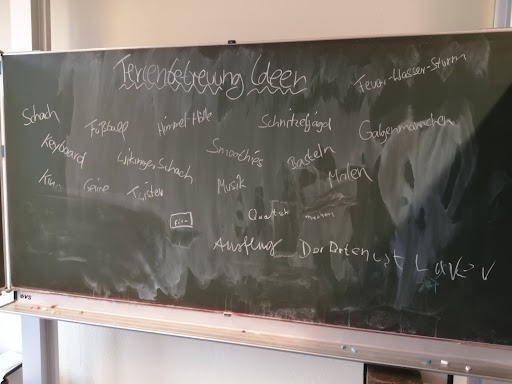 Ferienbetreuung Ideen
Feuer-Wasser-Sturm
Schach Fußball Himmel Hölle Schnitzeljagd Galgenmännchen
Keyboard Wikinger Schach Smoothies Basteln Malen
Musik
Quatsch machen
Ausflug Der Boden ist Lava